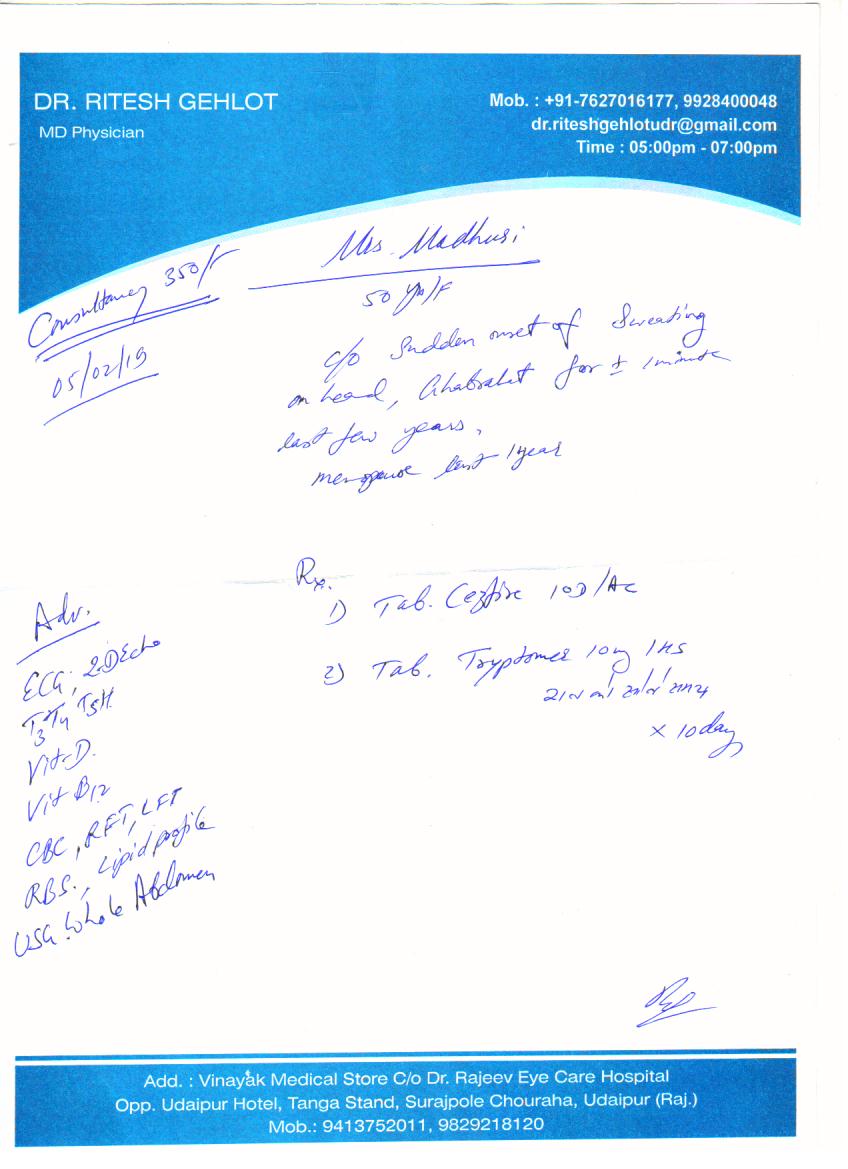 DR. RITESH GEHLOT
MD Physician
Mob. : +91-7627016177, 9928400048
dr.riteshgehlotudr@gmail.com
Time : 05:00pm - 07:00pm
Consultancy 350/-
05/02/19
Mrs. Madhusi
50 yrs/F
c/o Sudden onset of Sweating
on head, Ghabrahat for ± 1 minute
last few years,
menopause last 1 year
Rx.
1) Tab. 10D/AC
2) Tab. Tryptomer 10mg 1HS
x 10 day
Adv.
ECG, 2-D Echo
T3 T4 TSH
Vit-D.
Vit B12
CBC, RFT, LFT
RBS., Lipid profile
USG Whole Abdomen
Add. : Vinayak Medical Store C/o Dr. Rajeev Eye Care Hospital
Opp. Udaipur Hotel, Tanga Stand, Surajpole Chouraha, Udaipur (Raj.)
Mob.: 9413752011, 9829218120